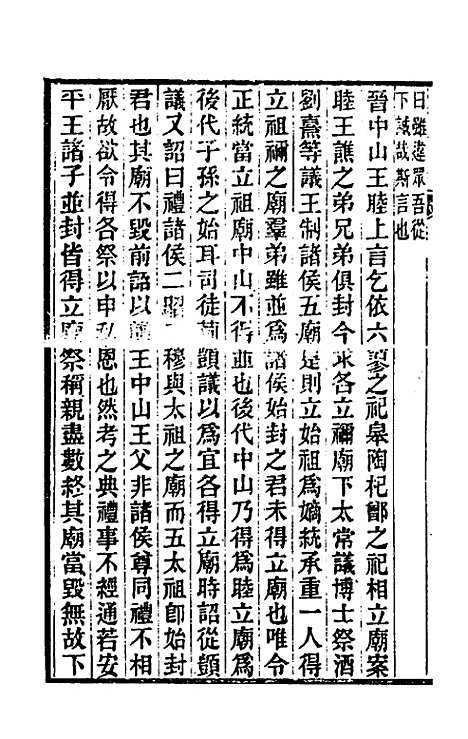 曰雖違眾吾從
下誠哉斯言也
晉中山王睦上言乞依六蓼之祀皋陶杞鄫之祀相立廟案
睦王譙之弟兄弟俱封今求各立禰廟下太常議博士祭酒
劉熹等議王制諸侯五廟是則立始祖為嫡統承重一人得
立祖禰之廟羣弟雖並為諸侯始封之君未得立廟也唯今
正統當立祖廟中山不得並也後代中山乃得為睦立廟為
後代子孫之始耳司徒荀顗議以為宜各得立廟時詔從顗
議又詔曰禮諸侯二昭二穆與太祖之廟而五太祖卽始封
君也其廟不毀前詔以譙王中山王父非諸侯尊同禮不相
厭故欲令得各祭以申私恩也然考之典禮事不經通若安
平王諸子並封皆得立廟祭稱親盡數終其廟當毀無故下